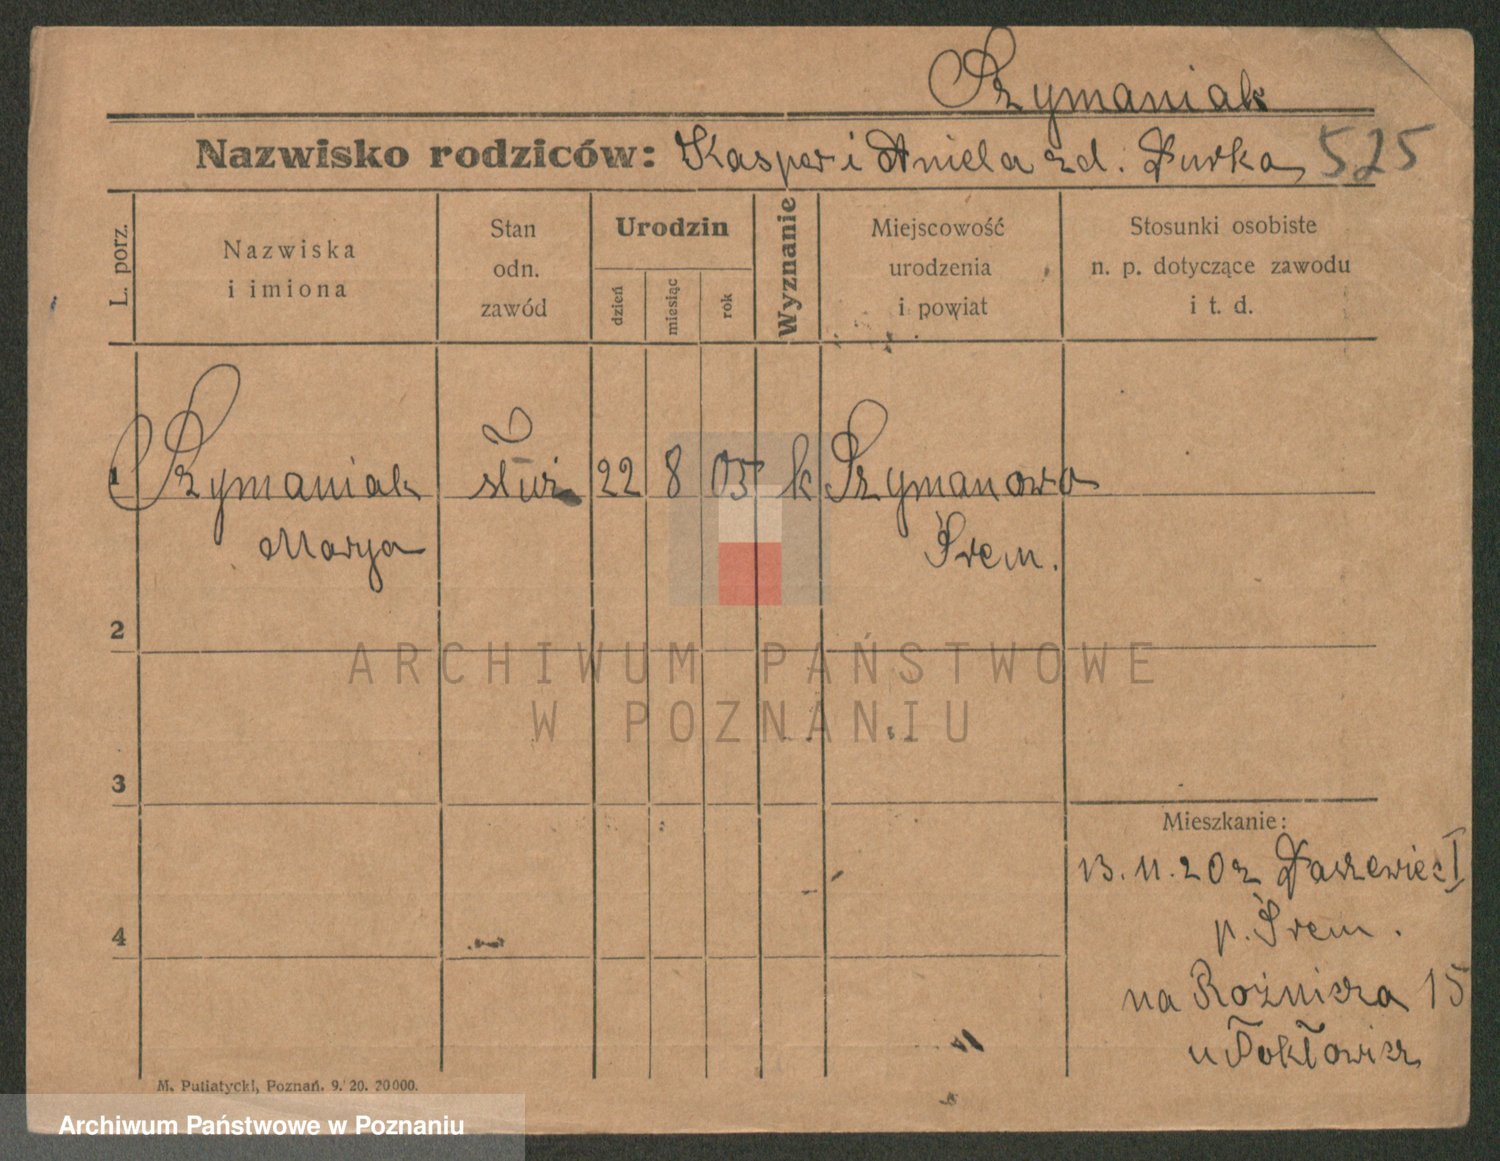 Szymaniak
Nazwisko rodziców: Kasper i Aniela zd. Durka 525
L. porz.
Nazwiska
i imiona
Stan
odn.
zawód
Urodzin
dzień
miesiąc
rok
Wyznanie
Miejscowość
urodzenia
i powiat
Stosunki osobiste
n. p. dotyczące zawodu
i t. d.
1 Szymaniak służ 22 8 05 k Szymanowo
Marya Śrem.
2
3
4
Mieszkanie:
13.11.20 z Daszewiec I
p. Śrem.
na Różnicza 15
u
M. Putiatycki, Poznań. 9. 20. 20000.
ARCHIWUM PAŃSTWOWE
W POZNANIU
Archiwum Państwowe w Poznaniu